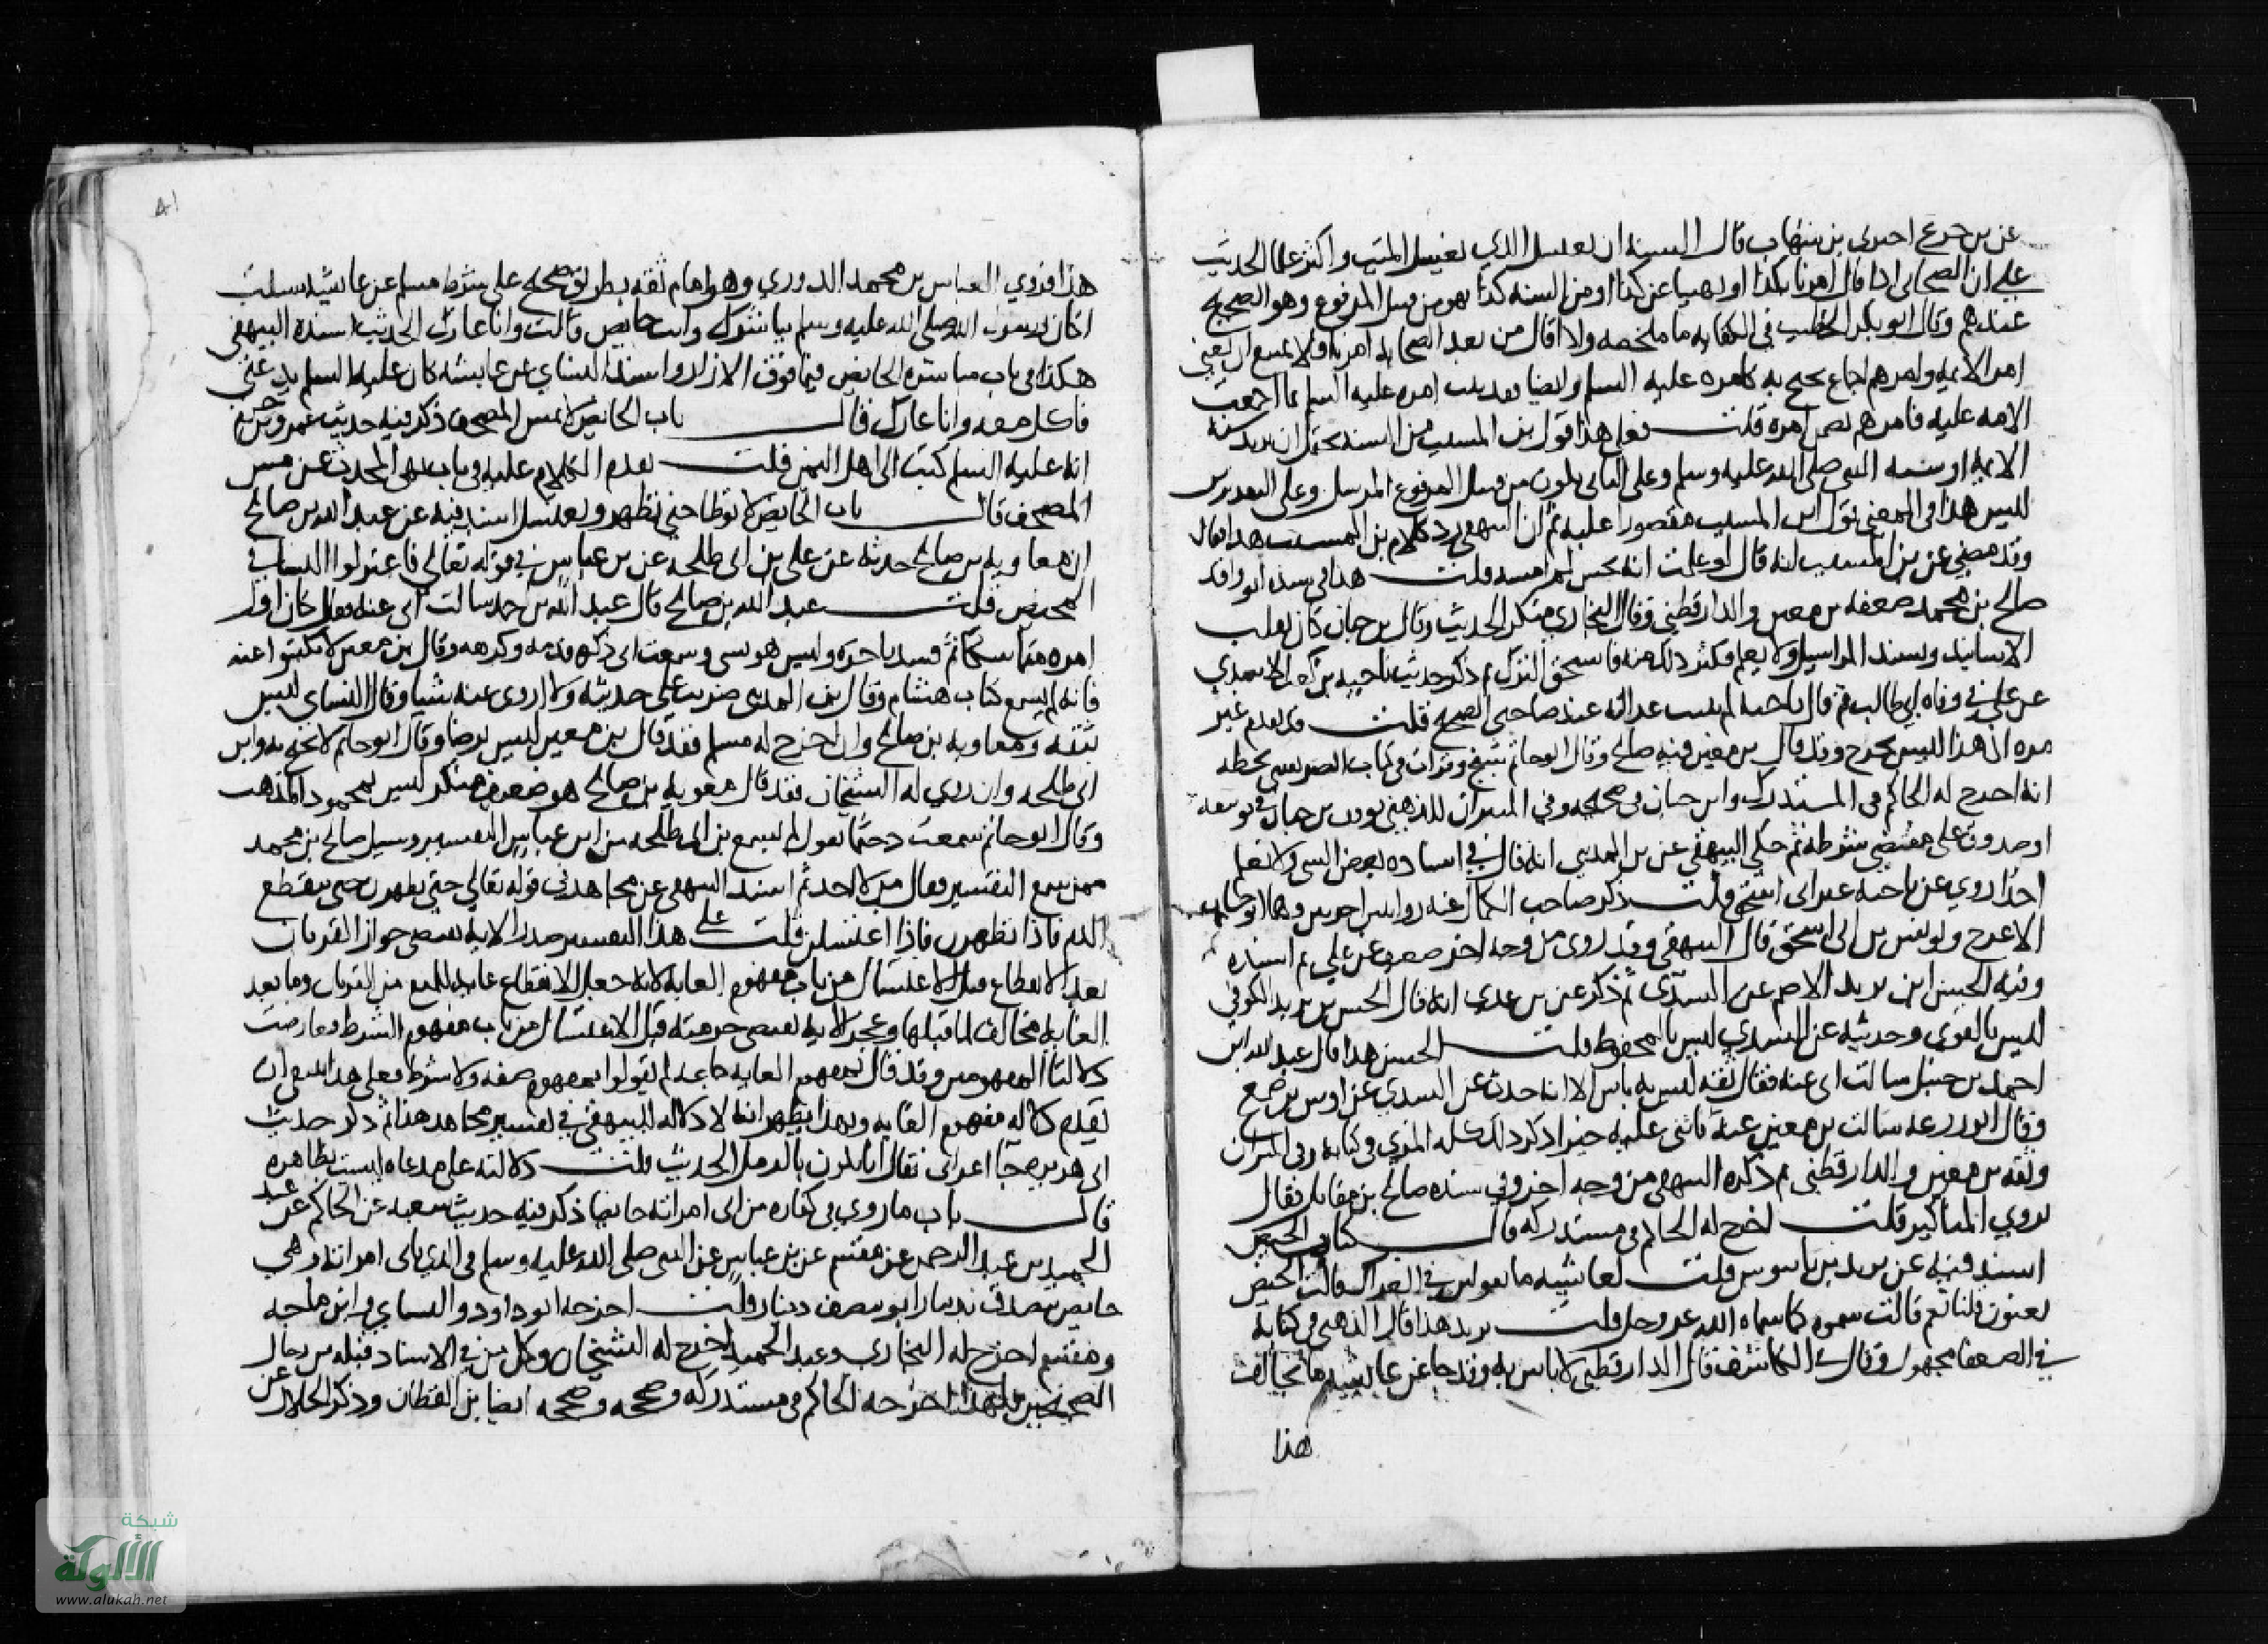 عن بن جريج اخبرني بن شهاب قال السنة ان يغتسل الذي يغسل الميت واكثر علما الحديث
على ان الصحابي اذا قال امرنا بكذا او نهينا عن كذا او من السنة كذا فهو من قبيل المرفوع وهو الصحيح
عندهم وقال ابو بكر الخطيب في الكفاية ما ملخصه ولا اقال من بعد الصحابة امرنا فلا يمتنع ان يعني
امر الائمة وامرهم اجماع يحتج به كامره عليه السلم وايضا بعد يثبت امره عليه السلم بما اجمعت
الامة عليه فامرهم يضمن امره قلت فعلى هذا قول بن المسيب من السنة يحتمل ان يريد سنة
الائمة او سنة النبي صلى الله عليه وسلم وعلى الثاني يكون من قبيل المرفوع المرسل وعلى التقديرين
ليس هذا في المعنى بقول ابن المسيب مقصورا عليه ثم ان البيهقي رد كلام بن المسيب هذا فقال
وقد مضى عن بن المسيب انه قال لو علمت انه نجس لم امسه قلت هذا في سنده ابو واقد
صالح بن محمد ضعفه بن معين والدارقطني وقال البخاري منكر الحديث وقال بن حبان كان يقلب
الاسانيد ويسند المراسيل ولا يعلم فكثر ذلك منه فاستحق الترك ثم ذكر حديث ناجية بن كعب الاسدي
عن علي في وفاة ابي طالب ثم قال ناجية لم يثبت عدالته عند صاحبي الصحيح قلت قد تقدم غير
مرة ان هذا ليس بجرح وقد قال بن معين فيه صالح وقال ابو حاتم شيخ وقرات في كتاب الصريفيني بخطه
انه اخرج له الحاكم في المستدرك وابن حبان في صحيحه وفي الميزان للذهبي توقف بن حبان في توثيقه
او صدوق على مقتضى شرطه ثم حكى البيهقي عن بن المديني انه قال في اسناده بعض الشي ولا نعلم
احدا روى عن ناجية غير ابي اسحق قلت ذكر صاحب الكمال عنه راويين اخرين وهما ابو حسان
الاعرج ويونس بن ابي اسحق قال البيهقي وقد روي من وجه اخر ضعيف عن علي ثم اسنده
وفيه الحسن ابن يزيد الاصم عن السدي ثم ذكر عن بن عدي انه قال الحسن بن يزيد الكوفي
ليس بالقوي وحديثه عن السدي ليس بالمحفوظ قلت الحسن هذا قال عبد الله ابن
احمد بن حنبل سالت ابي عنه فقال ثقة ليس به باس الا انه حدث عن السدي عن اوس بن ضمعج
وقال ابو زرعة سالت بن معين عنه فاثنى عليه خيرا ذكر ذلك كله المزي في كتابه وفي الميزان
وثقه بن معين والدارقطني ثم ذكره البيهقي من وجه اخر وفي سنده صالح بن مقاتل فقال
يروي المناكير قلت اخرج له الحاكم في مستدركه قال كتاب الحيض
اسند فيه عن يزيد بن بابنوس قلت لعائشة ما تقولين في العراك قالت الحيض
تعنون قلنا نعم قالت سموه كما سماه الله عز وجل قلت يزيد هذا قال الذهبي في كتابه
في الضعفا مجهول وقال في الكاشف قال الدارقطني لا باس به وقد جا عن عائشة ما يخالف
هذا
٨١
هذا فروى العباس بن محمد الدوري وهو امام ثقة بطريق صحيح على شرط مسلم عن عائشة سئلت
اكان رسول الله صلى الله عليه وسلم يباشرك وانت حايض قالت وانا عارك الحديث اسنده البيهقي
هكذا في باب مباشرة الحايض فيما فوق الازار واسند النساي عن عائشة كان عليه السلم يدعني
فاكل معه وانا عارك قال باب الحايض لا تمس المصحف ذكر فيه حديث عمرو بن حزم
انه عليه السلم كتب الى اهل اليمن قلت تقدم الكلام عليه في باب نهي المحدث عن مس
المصحف قال باب الحايض لا توطا حتى تطهر وتغتسل اسند فيه عن عبد الله بن صالح
ان معاوية بن صالح حدثه عن علي بن ابي طلحة عن بن عباس في قوله تعالى فاعتزلوا النسا في
المحيض قلت عبد الله بن صالح قال عبد الله بن احمد سالت ابي عنه فقال كان اول
امره متماسكا ثم فسد باخرة وليس هو بشي وسمعت ابي ذكره فذمه وكرهه وقال بن معين لا تكتبوا عنه
فانه لم يسمع كتاب هشام وقال بن المديني ضربت على حديثه ولا اروي عنه شيا وقال النساي ليس
بثقة ومعاوية بن صالح وان اخرج له مسلم فقد قال بن معين ليس برضا وقال ابو حاتم لا يحتج به وابن
ابي طلحة وان روى له الشيخان فقد قال معوية بن صالح هو ضعيف منكر ليس بمحمود المذهب
وقال ابو حاتم سمعت دحيما يقول لم يسمع بن ابي طلحة من ابن عباس التفسير وسيل صالح بن محمد
ممن سمع التفسير فقال من لا احد ثم اسند البيهقي عن مجاهد في قوله تعالى حتى يطهرن حتى ينقطع
الدم فاذا تطهرن فاذا اغتسلن قلت على هذا التفسير صدر الاية يقتضي جواز القربان
بعد الانقطاع قبل الاغتسال من باب مفهوم الغاية لانه جعل الانقطاع غاية للمنع من القربان وما بعد
الغاية مخالف لما قبلها وعجز الاية يقتضي حرمته قبل الاغتسال من باب مفهوم الشرط فعارضت
دلالتا المفهومين وقد قال بمفهوم الغاية جماعة لم يقولوا بمفهوم صفة ولا شرط فعلى هذا ينبغي ان
تقدم دلالة مفهوم الغاية وبهذا يظهر انه لا دلالة للبيهقي في تفسير مجاهد هذا ثم ذكر حديث
ابي هريرة جا اعرابي فقال انا نكون بالرمل الحديث قلت دلالته على مدعاه ليست بظاهرة
قال باب ما روي في كفارة من اتى امراته حايضا ذكر فيه حديث شعبة عن الحاكم عن عبد
الحميد بن عبد الرحمن عن مقسم عن بن عباس عن النبي صلى الله عليه وسلم في الذي ياتي امراته وهي
حايض يتصدق بدينار او بنصف دينار قلت اخرجه ابو داود والنساي وابن ماجه
ومقسم اخرج له البخاري وعبد الحميد اخرج له الشيخان وكل من في الاسناد قبله من رجال
الصحيحين فلهذا اخرجه الحاكم في مستدركه وصححه وصححه ايضا بن القطان وذكر الخلال عن
شبكة
الألوكة
www.alukah.net